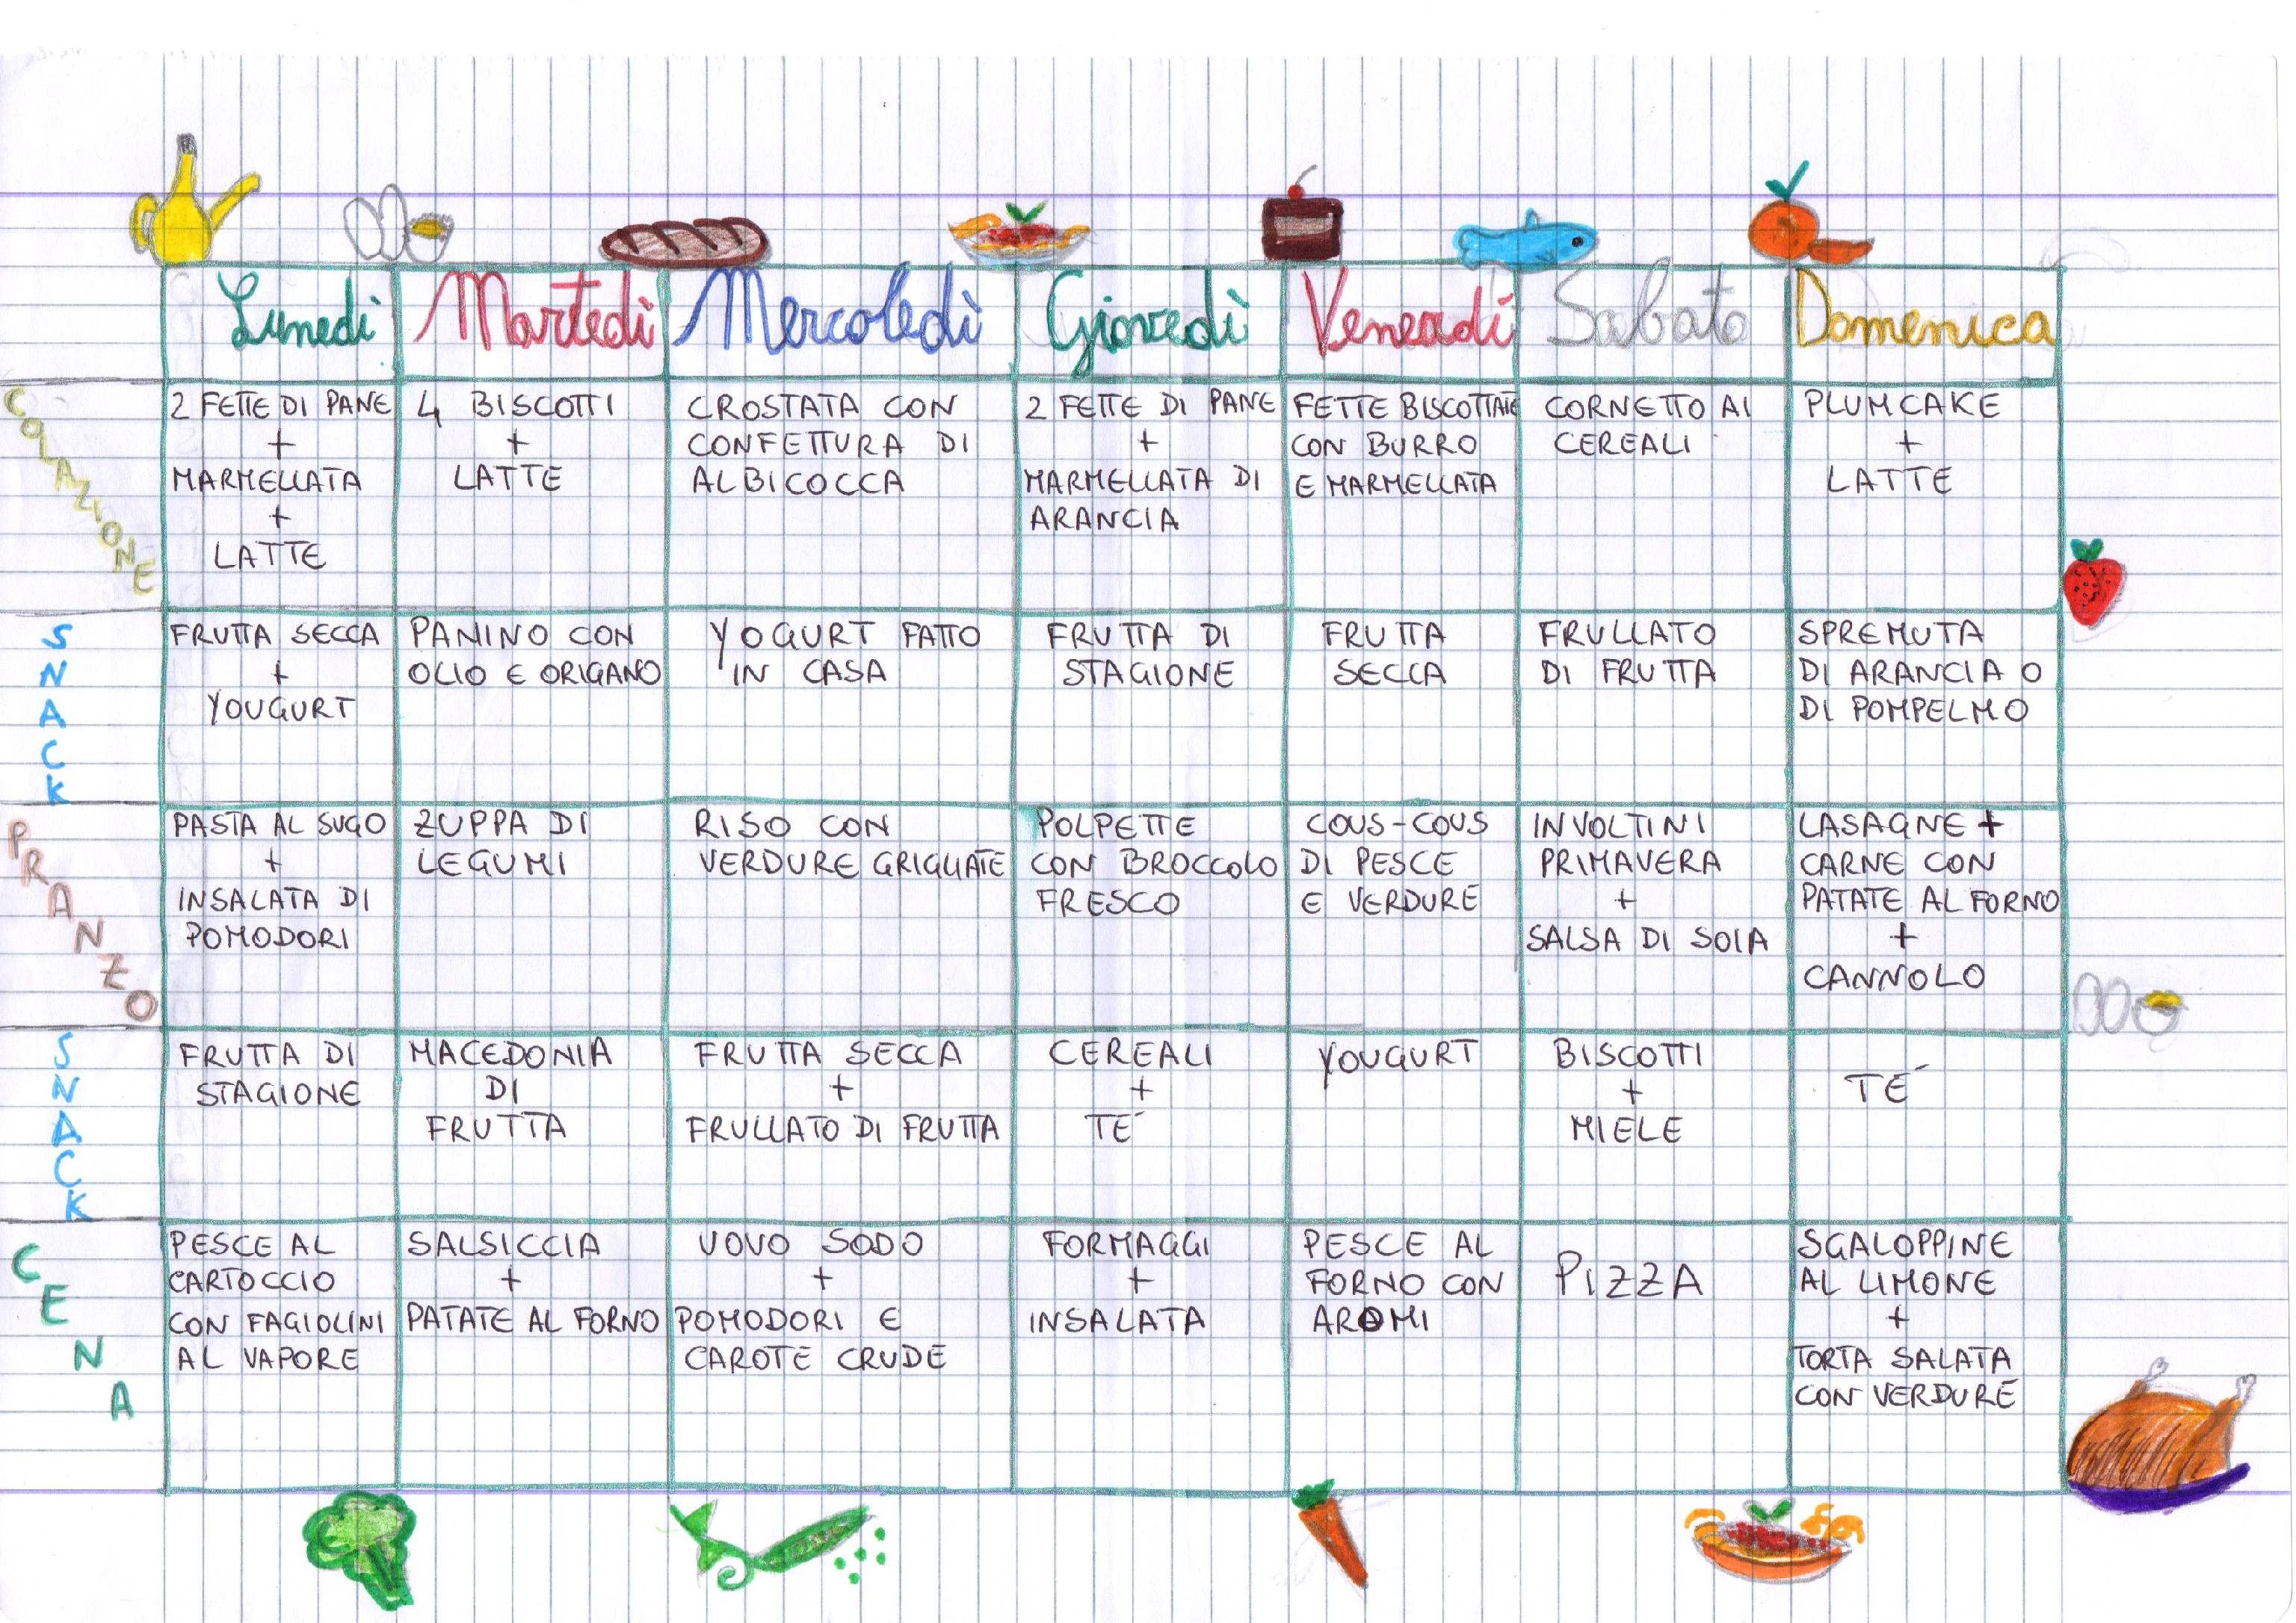 Lunedì Martedì Mercoledì Giovedì Venerdì Sabato Domenica
COLAZIONE
2 FETTE DI PANE
+
MARMELLATA
+
LATTE
4 BISCOTTI
+
LATTE
CROSTATA CON
CONFETTURA DI
ALBICOCCA
2 FETTE DI PANE
+
MARMELLATA DI
ARANCIA
FETTE BISCOTTATE
CON BURRO
E MARMELLATA
CORNETTO AI
CEREALI
PLUMCAKE
+
LATTE
SNACK
FRUTTA SECCA
+
YOUGURT
PANINO CON
OLIO E ORIGANO
YOGURT FATTO
IN CASA
FRUTTA DI
STAGIONE
FRUTTA
SECCA
FRULLATO
DI FRUTTA
SPREMUTA
DI ARANCIA O
DI POMPELMO
PRANZO
PASTA AL SUGO
+
INSALATA DI
POMODORI
ZUPPA DI
LEGUMI
RISO CON
VERDURE GRIGLIATE
POLPETTE
CON BROCCOLO
FRESCO
COUS-COUS
DI PESCE
E VERDURE
INVOLTINI
PRIMAVERA
+
SALSA DI SOIA
LASAGNE +
CARNE CON
PATATE AL FORNO
+
CANNOLO
SNACK
FRUTTA DI
STAGIONE
MACEDONIA
DI
FRUTTA
FRUTTA SECCA
+
FRULLATO DI FRUTTA
CEREALI
+
TE´
YOUGURT
BISCOTTI
+
MIELE
TE´
CENA
PESCE AL
CARTOCCIO
CON FAGIOLINI
AL VAPORE
SALSICCIA
+
PATATE AL FORNO
UOVO SODO
+
POMODORI E
CAROTE CRUDE
FORMAGGI
+
INSALATA
PESCE AL
FORNO CON
AROMI
PIZZA
SGALOPPINE
AL LIMONE
+
TORTA SALATA
CON VERDURE